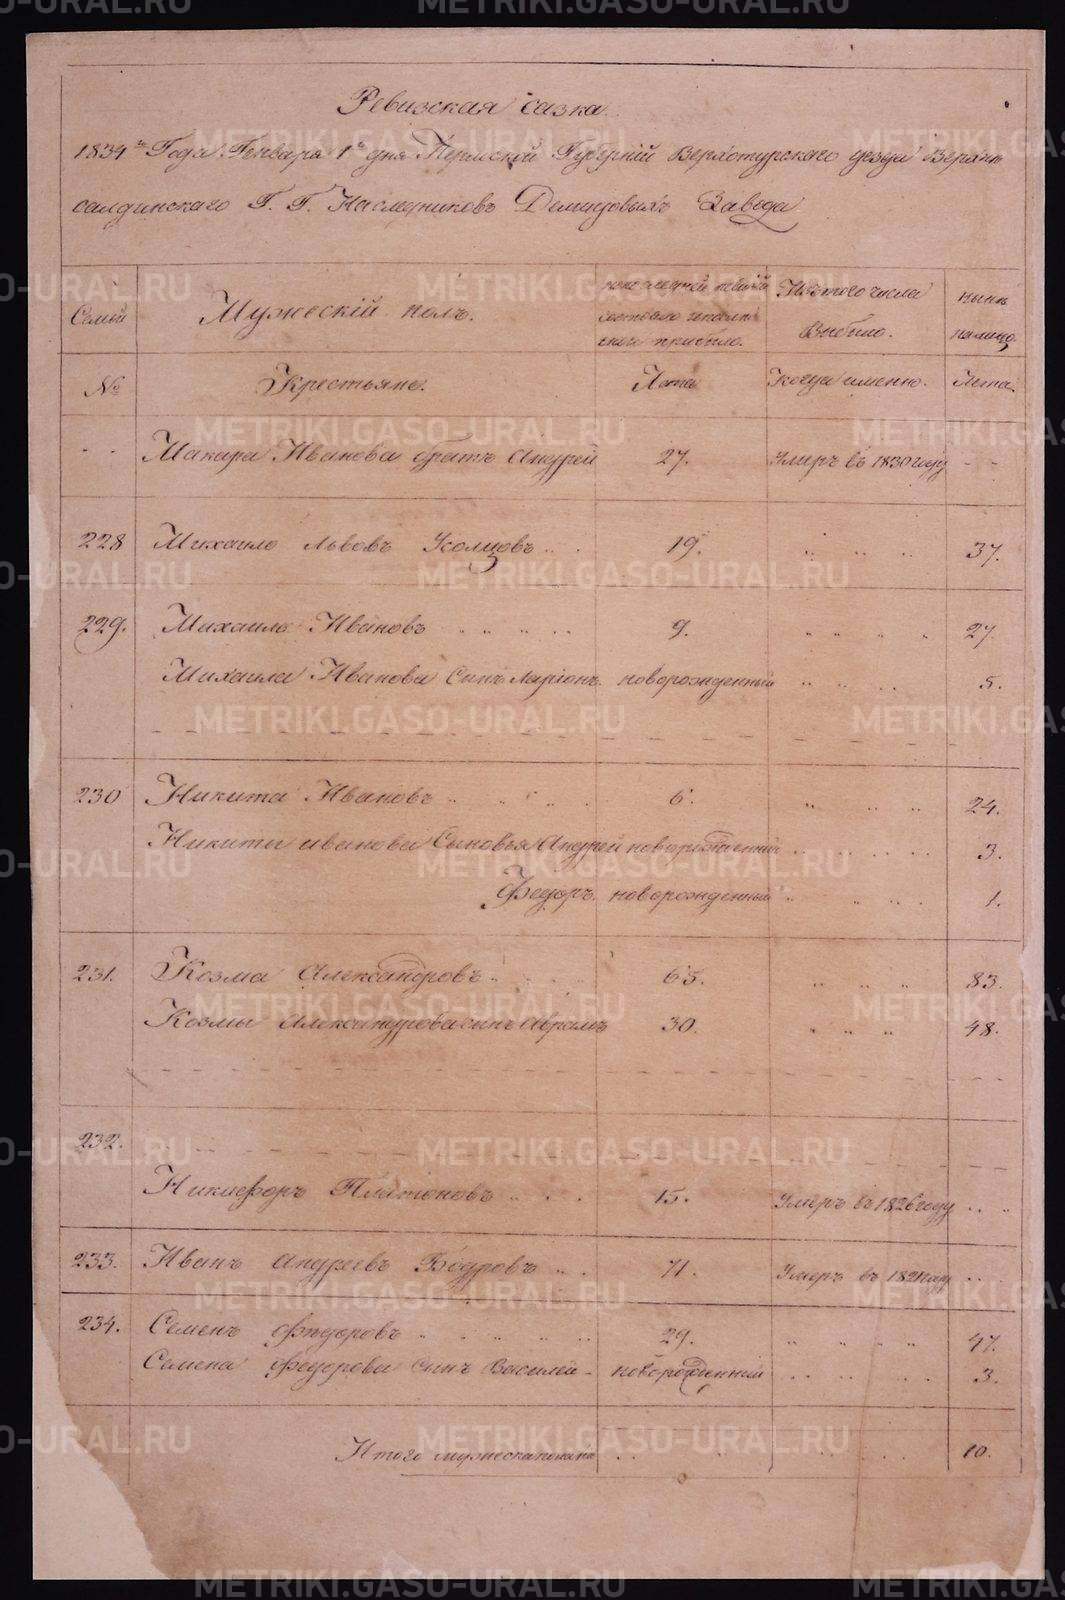 Ревизская сказка
1834го Года Генваря 1го дня Пермской Губерніи Верхотурского уезда Верхне
салдинскаго Г. Г. Наследниковъ Демидовыхъ Завода
Семьи
Мужескій полъ.
по последней ревизій
состояло и после
оной прибыло.
Изъ того числа
Выбыло.
ныне
налицо.
№
Крестьяне.
Лета
Когда именно.
Лета.
Макара Иванова братъ Андрей 27. Умеръ въ 1830 году
228 Михаило Львовъ Усолцовъ 19. 37.
229. Михаило Ивановъ 9. 27
Михаила Иванова Сынъ Ларіонъ новорожденный 5.
230 Никита Ивановъ 6. 24.
Никиты иванова Сыновья Андрей новорожденный 3.
Федоръ новорожденный 1.
231. Козма Александровъ 65. 83.
Козмы Александрова сынъ Аврамъ 30. 48.
232.
Никифоръ Платоновъ 15. Умеръ въ 1826 году
233. Иванъ Андреевъ Бодровъ 71. Умеръ въ 1821 году
234. Семенъ Федоровъ 29. 47.
Семена Федорова сынъ Василей новорожденний 3.
Итого мужеска пола 10.
METRIKI.GASO-URAL.RU